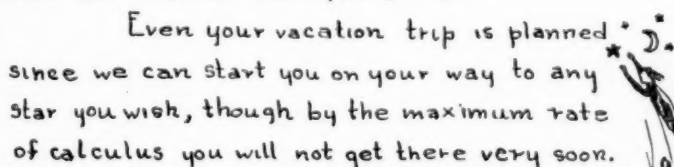 Even your vacation trip is planned
since we can start you on your way to any
star you wish, though by the maximum rate
of calculus you will not get there very soon.